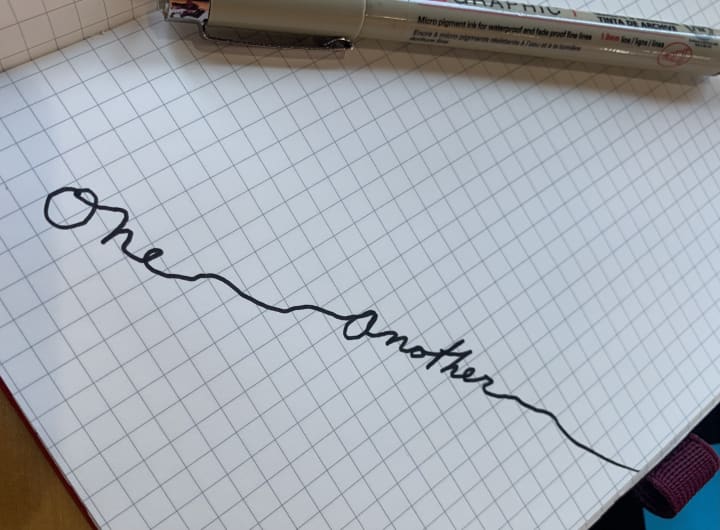 GRAPHIC 1
TINTA DE ARCHIVO
Micro pigment ink for waterproof and fade proof fine lines
1.0mm line / ligne / línea
Encre à micro pigments résistante à l'eau et à la lumière
One another